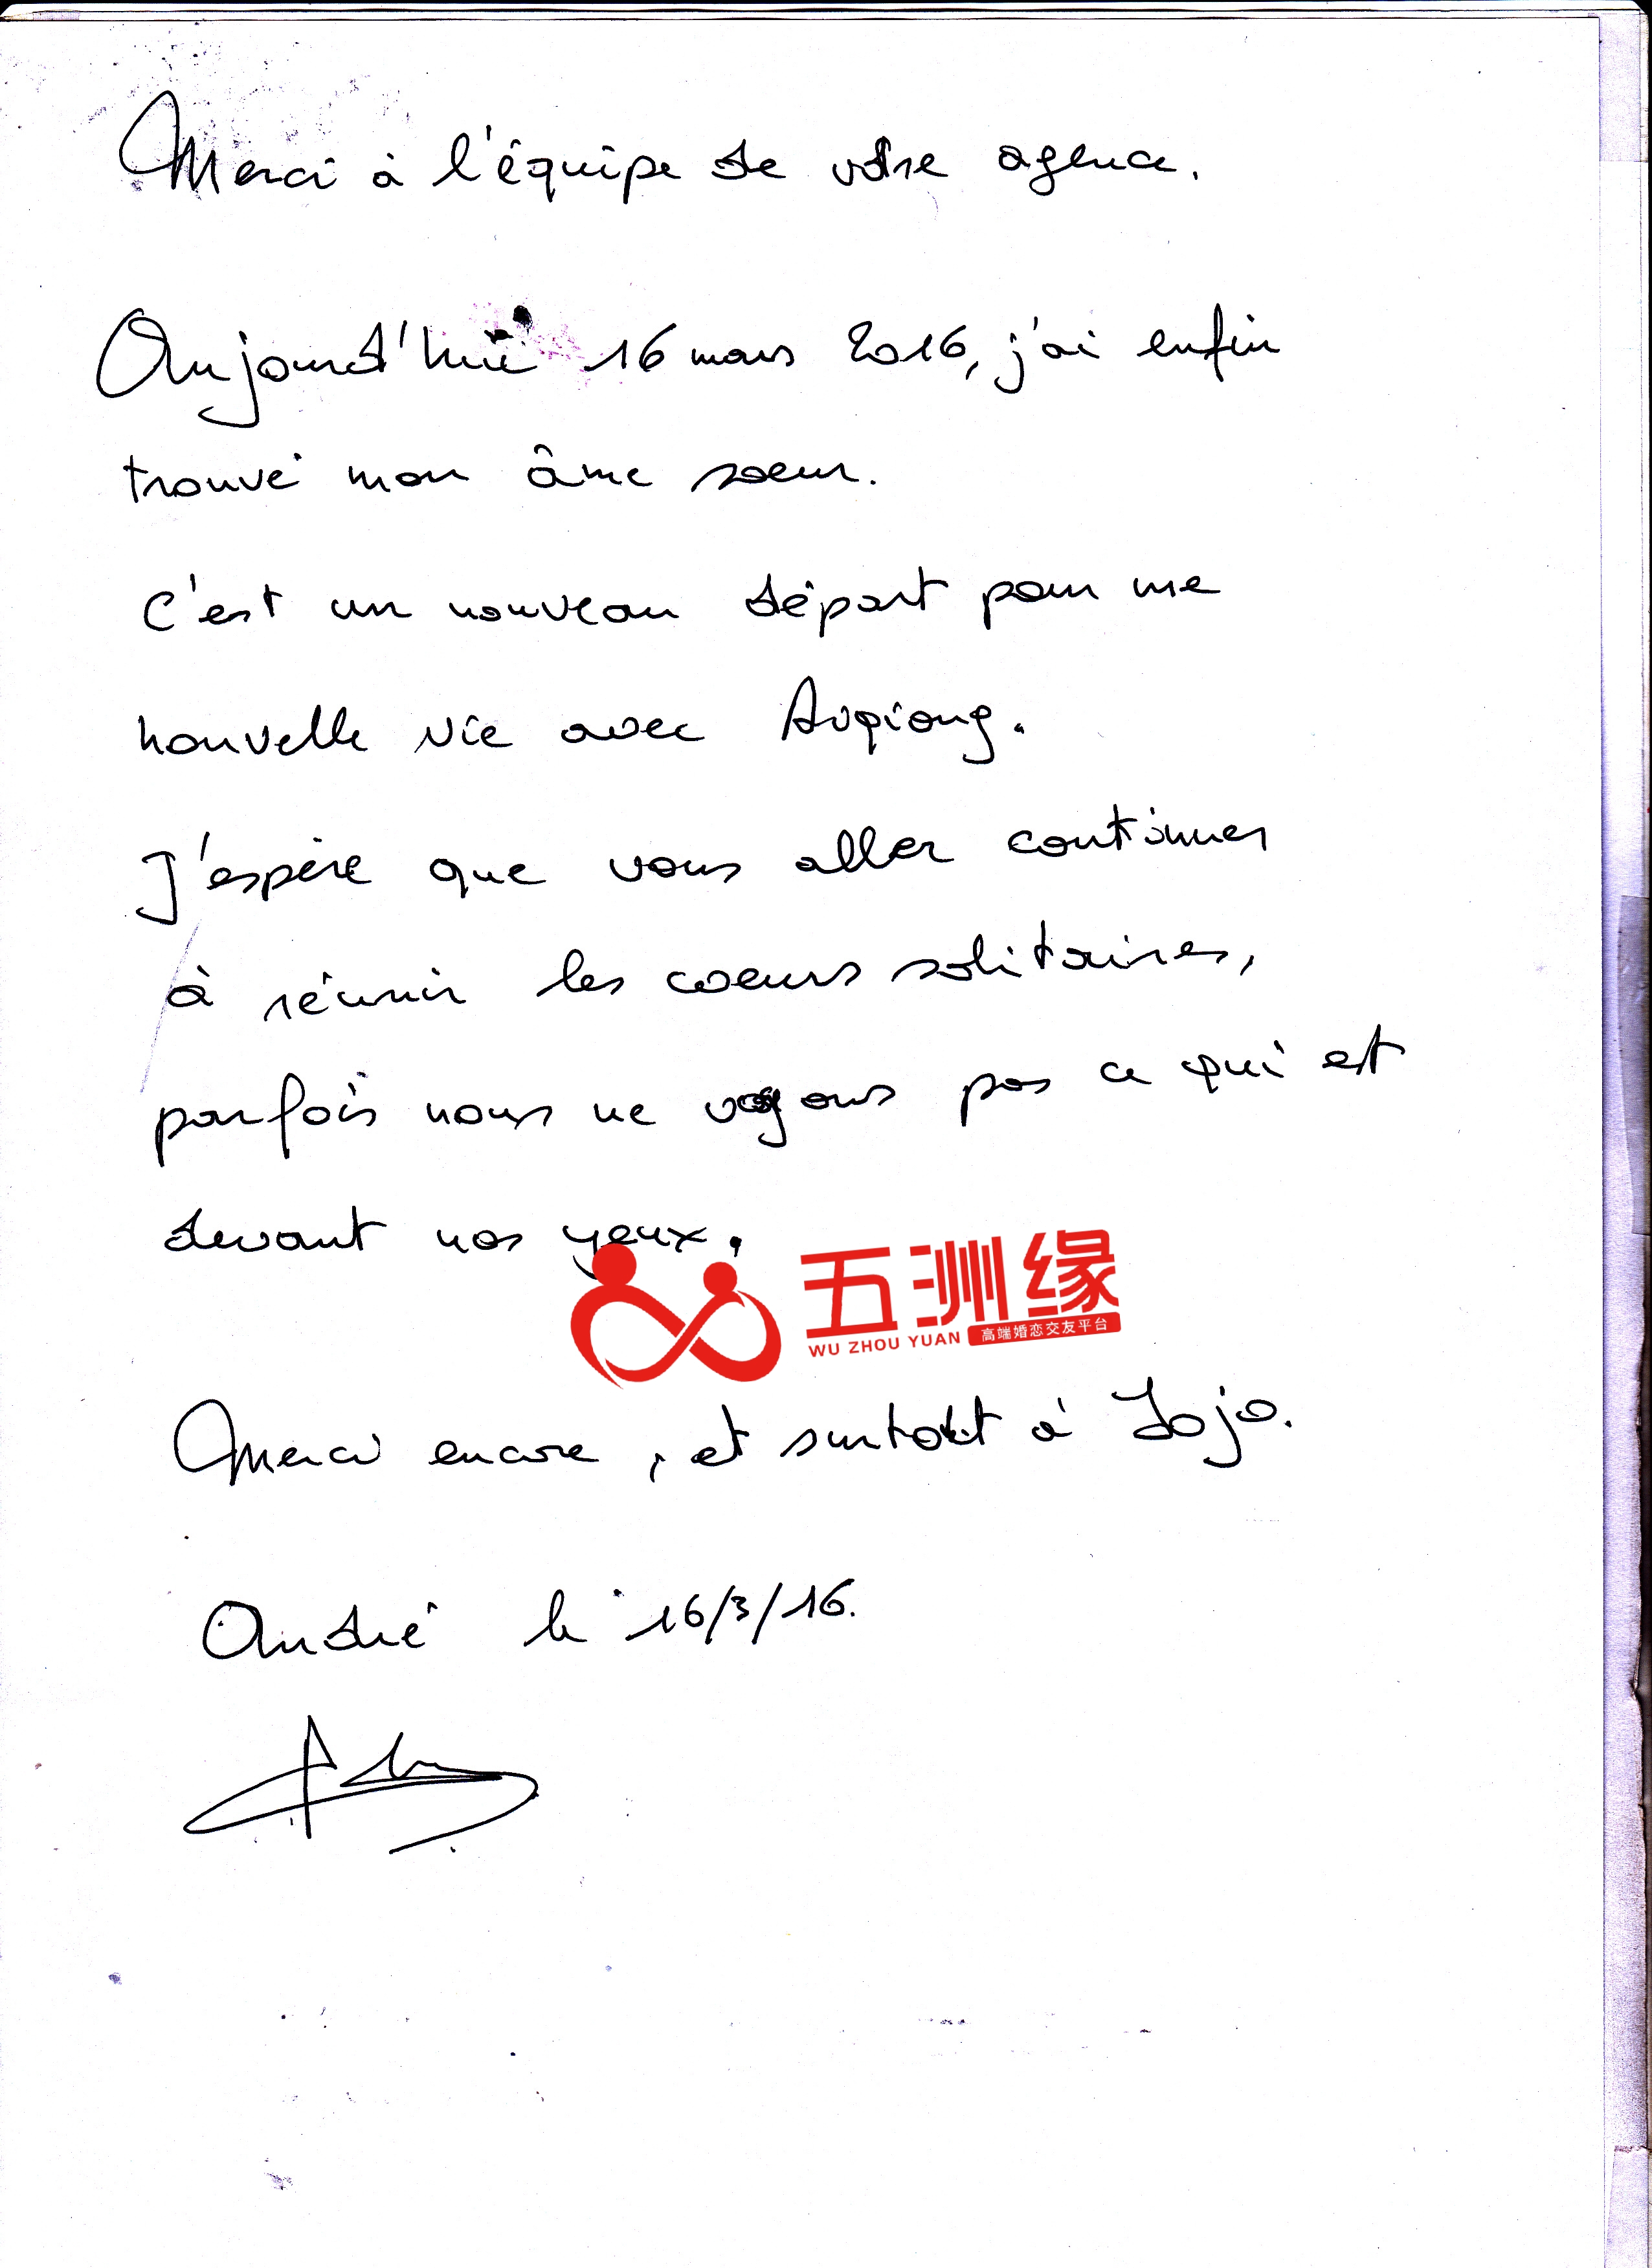 Merci à l'équipe de votre agence.
Aujourd'hui 16 mars 2016, j'ai enfin
trouvé mon âme soeur.
C'est un nouveau départ pour me
nouvelle vie avec Auqiong.
J'espère que vous aller continuer
à réunir les coeurs solitaires,
parfois nous ne voyons pas ce qui est
devant nos yeux.
五洲缘
WU ZHOU YUAN 高端婚恋交友平台
Merci encore, et surtout à Jojo.
André le 16/3/16.